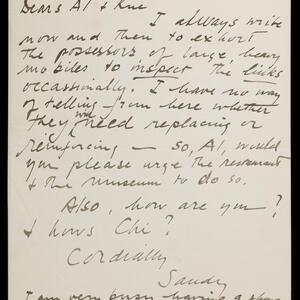 Dears Al + Rue
I always write
now and then to exhort
the possessors of large, heavy
mobiles to inspect the links
occasionally. I have no way
of telling from here whether
they will need replacing or
reinforcing — so, Al, would
you please urge the restaurant
& the museum to do so.
Also, how are you?
& hows Chi?
Cordially
Sandy
I am very busy having a